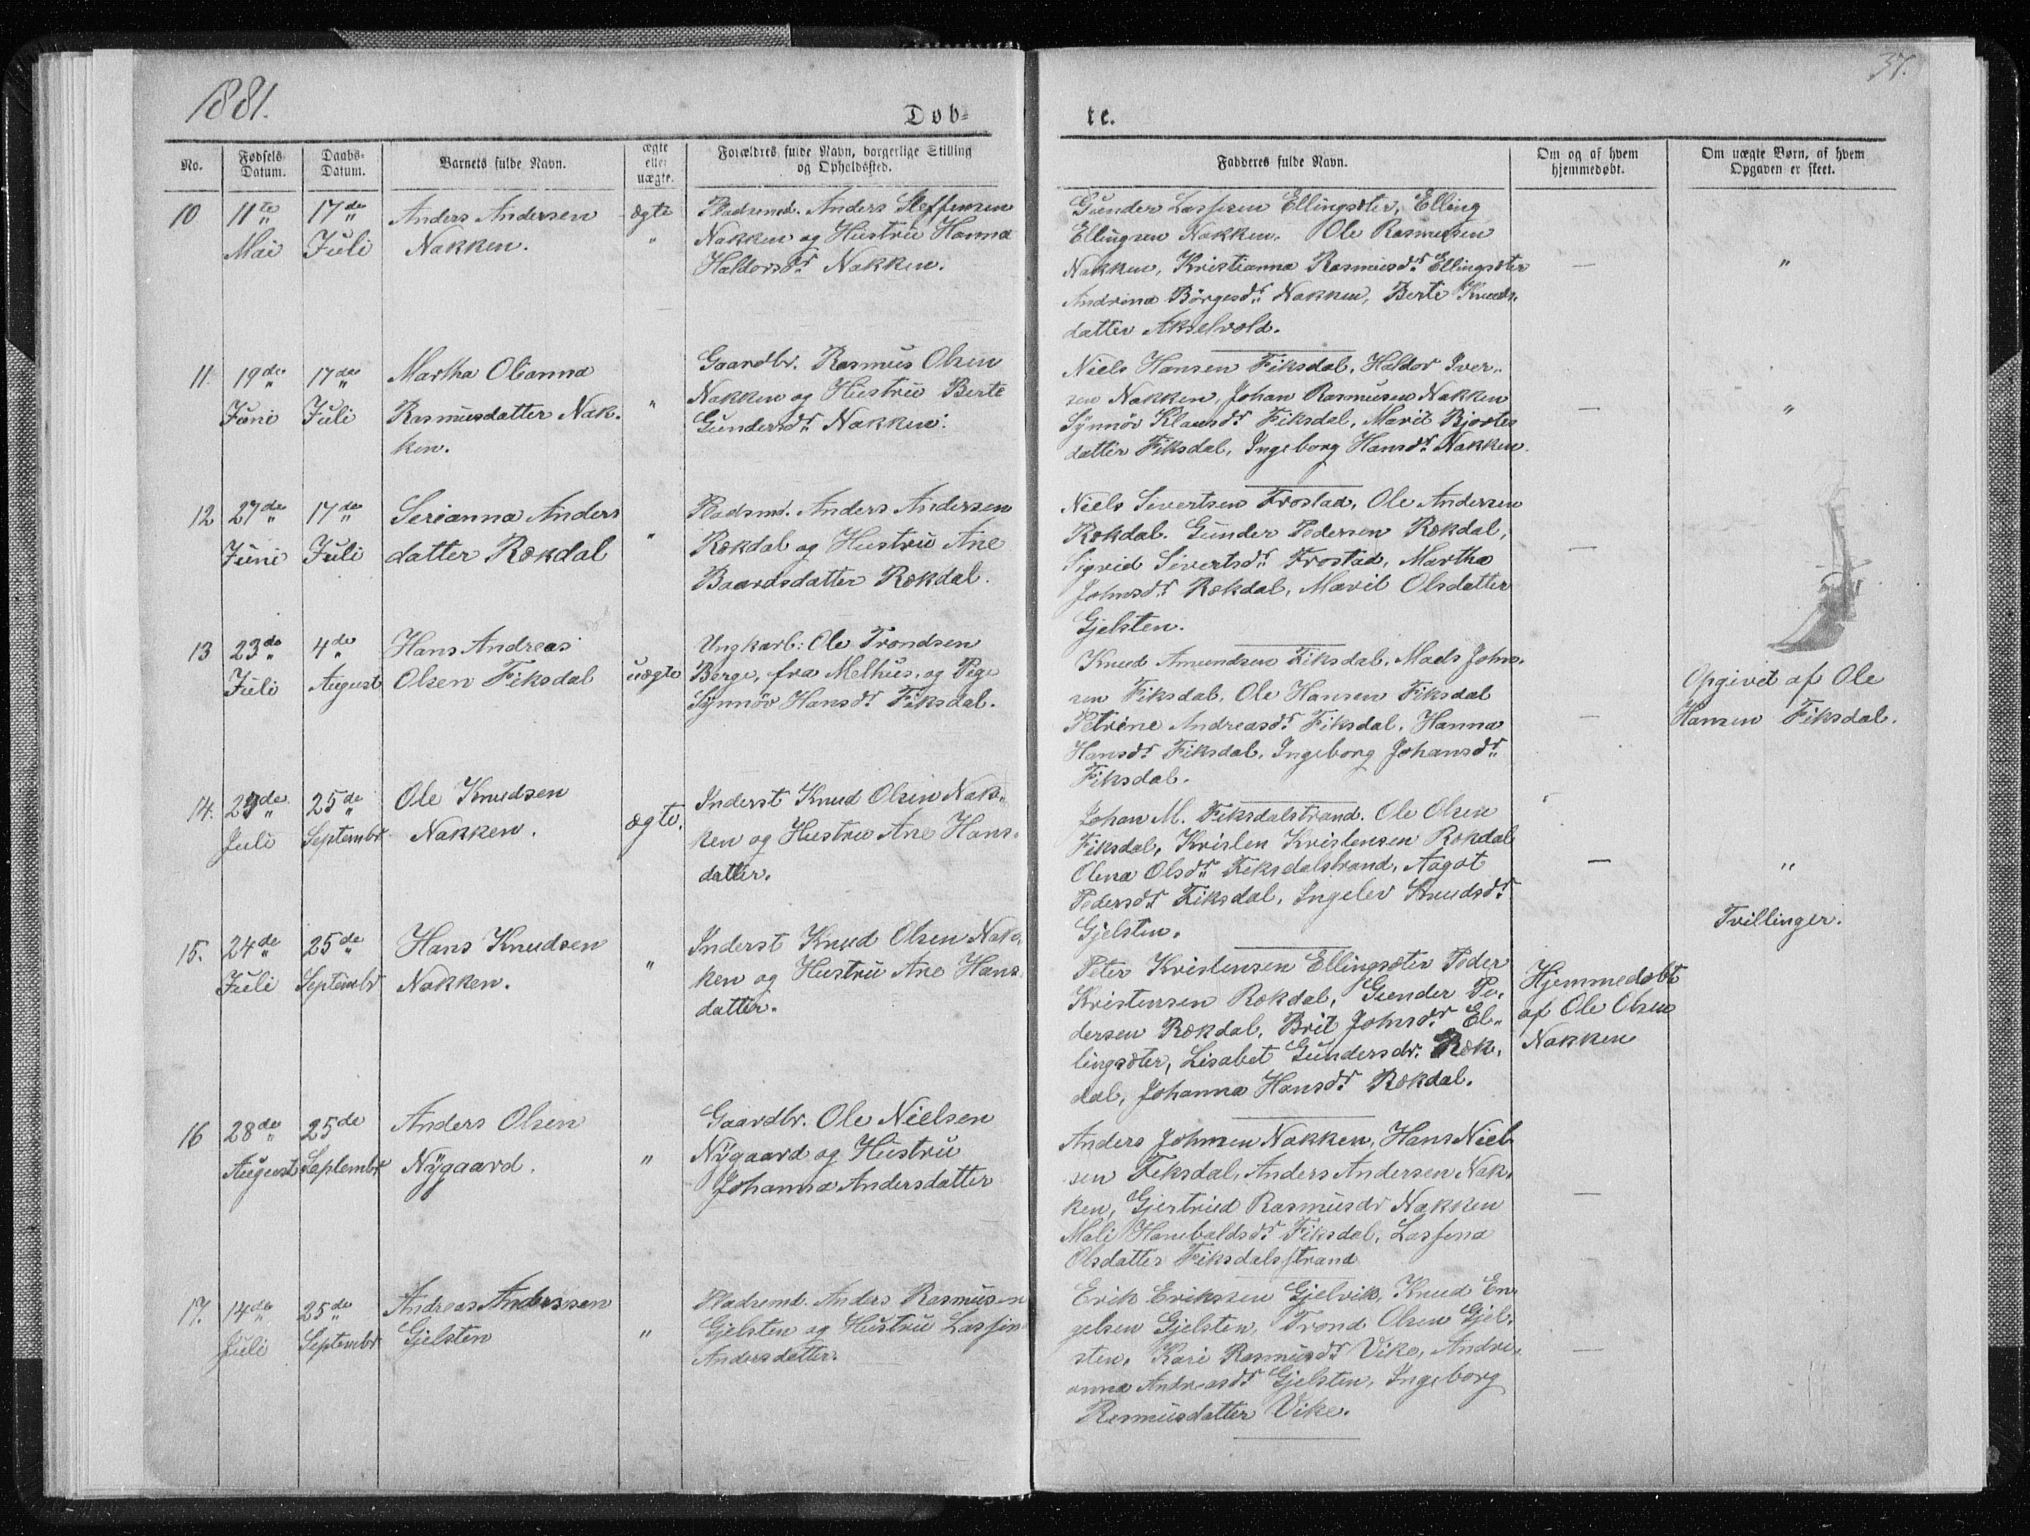 1881.
37.
Døb-
te.
No.
Fødsels-
Datum.
Daabs-
Datum.
Barnets fulde Navn.
ægte
eller
uægte.
Forældres fulde Navn, borgerlige Stilling
og Opholdssted.
Fadderes fulde Navn.
Om og af hvem
hjemmedøbt.
Om uægte Børn, af hvem
Opgaven er skeet.
10 11te Mai
17de Juli
Anders Andersen
Nakken.
ægte
Pladsmd. Anders Steffensen
Nakken og Hustru Hanna
Haldorsdr. Nakken.
Gunder Lassesen Ellingsæter, Elling
Ellingsen Nakken, Ole Rasmussen
Nakken, Kristianna Rasmusdr. Ellingsæter
Andrina Børgesdr. Nakken, Berte Knuds-
datter Akselvold.
—
"
11. 19de Juni
17de Juli
Martha Olianna
Rasmusdatter Nak-
ken.
"
Gaardbr. Rasmus Olsen
Nakken og Hustru Berte
Gundersdr. Nakken.
Niels Hansen Fiksdal, Haldor Iver-
sen Nakken, Johan Rasmusen Nakken
Synnøv Klausdr. Fiksdal, Marit Bjostes
datter Fiksdal, Ingeborg Hansdr. Nakken.
—
"
12 27de Juni
17de Juli
Serianna Anders
datter Rækdal
"
Pladsmd. Anders Andersen
Rækdal og Hustru Ane
Baardsdatter Rækdal.
Niels Sivertsen Frostad, Ole Andersen
Rækdal. Gunder Pedersen Rækdal,
Sigrid Sivertsdr. Frostad, Martha
Johnsdr. Rækdal, Marit Olsdatter
Gjelsten.
—
13 23de Juli
4de August
Hans Andreas
Olsen Fiksdal
uægte
Ungkarl: Ole Trondsen
Berge, fra Melhus, og Pige
Synnöv Hansdr. Fiksdal.
Knud Amundsen Fiksdal, Mads John-
sen Fiksdal, Ole Hansen Fiksdal
Petrine Andreasdr. Fiksdal, Hanna
Hansdr. Fiksdal, Ingeborg Johansdr.
Fiksdal.
—
Opgivet af Ole
Hansen Fiksdal.
14. 23de Juli
25de Septembr
Ole Knudsen
Nakken.
ægte.
Inderst Knud Olsen Nak-
ken og Hustru Ane Hans-
datter.
Johan M. Fiksdalstrand. Ole Olsen
Fiksdal, Kristen Kristensen Rækdal
Olena Olsdr. Fiksdalstrand, Aagot
Pedersdr. Fiksdal, Ingelev Knudsdr.
Gjelsten.
—
"
Tvillinger.
15. 24de Juli
25de Septembr
Hans Knudsen
Nakken.
"
Inderst Knud Olsen Nak-
ken og Hustru Ane Hans
datter.
Peter Kristensen Ellingsæter Peder
Kristensen Rækdal, Gunder Pe-
dersen Rækdal, Brit Johnsdr. El-
lingsæter, Lisabet Gundersdr. Ræk-
dal, Johanna Hansdr. Rækdal.
Hjemmedøbt
af Ole Olsen
Nakken
16 28de August
25de Septembr
Anders Olsen
Nÿgaard.
"
Gaardbr. Ole Nielsen
Nÿgaard og Hustru
Johanna Andersdatter
Anders Johnsen Nakken, Hans Niel
sen Fiksdal, Anders Andersen Nak-
ken, Gjertrud Rasmusdr Nakken
Mali Hanebaldsdr. Fiksdal, Lassena
Olsdatter Fiksdalsstrand
—
17. 14de Juli
25de Septembr
Andreas Anderssen
Gjelsten
"
Pladsmd. Anders Rasmusen
Gjelsten og Hustru Lassin
Andersdatter.
Erik Erikssen Gjelvik, Knud En-
gelsen Gjelsten, Trond Olsen Gjel-
sten, Kari Rasmusdr. Vike, Andri-
anna Andreasdr. Gjelsten, Ingeborg
Rasmusdatter Vike.
—